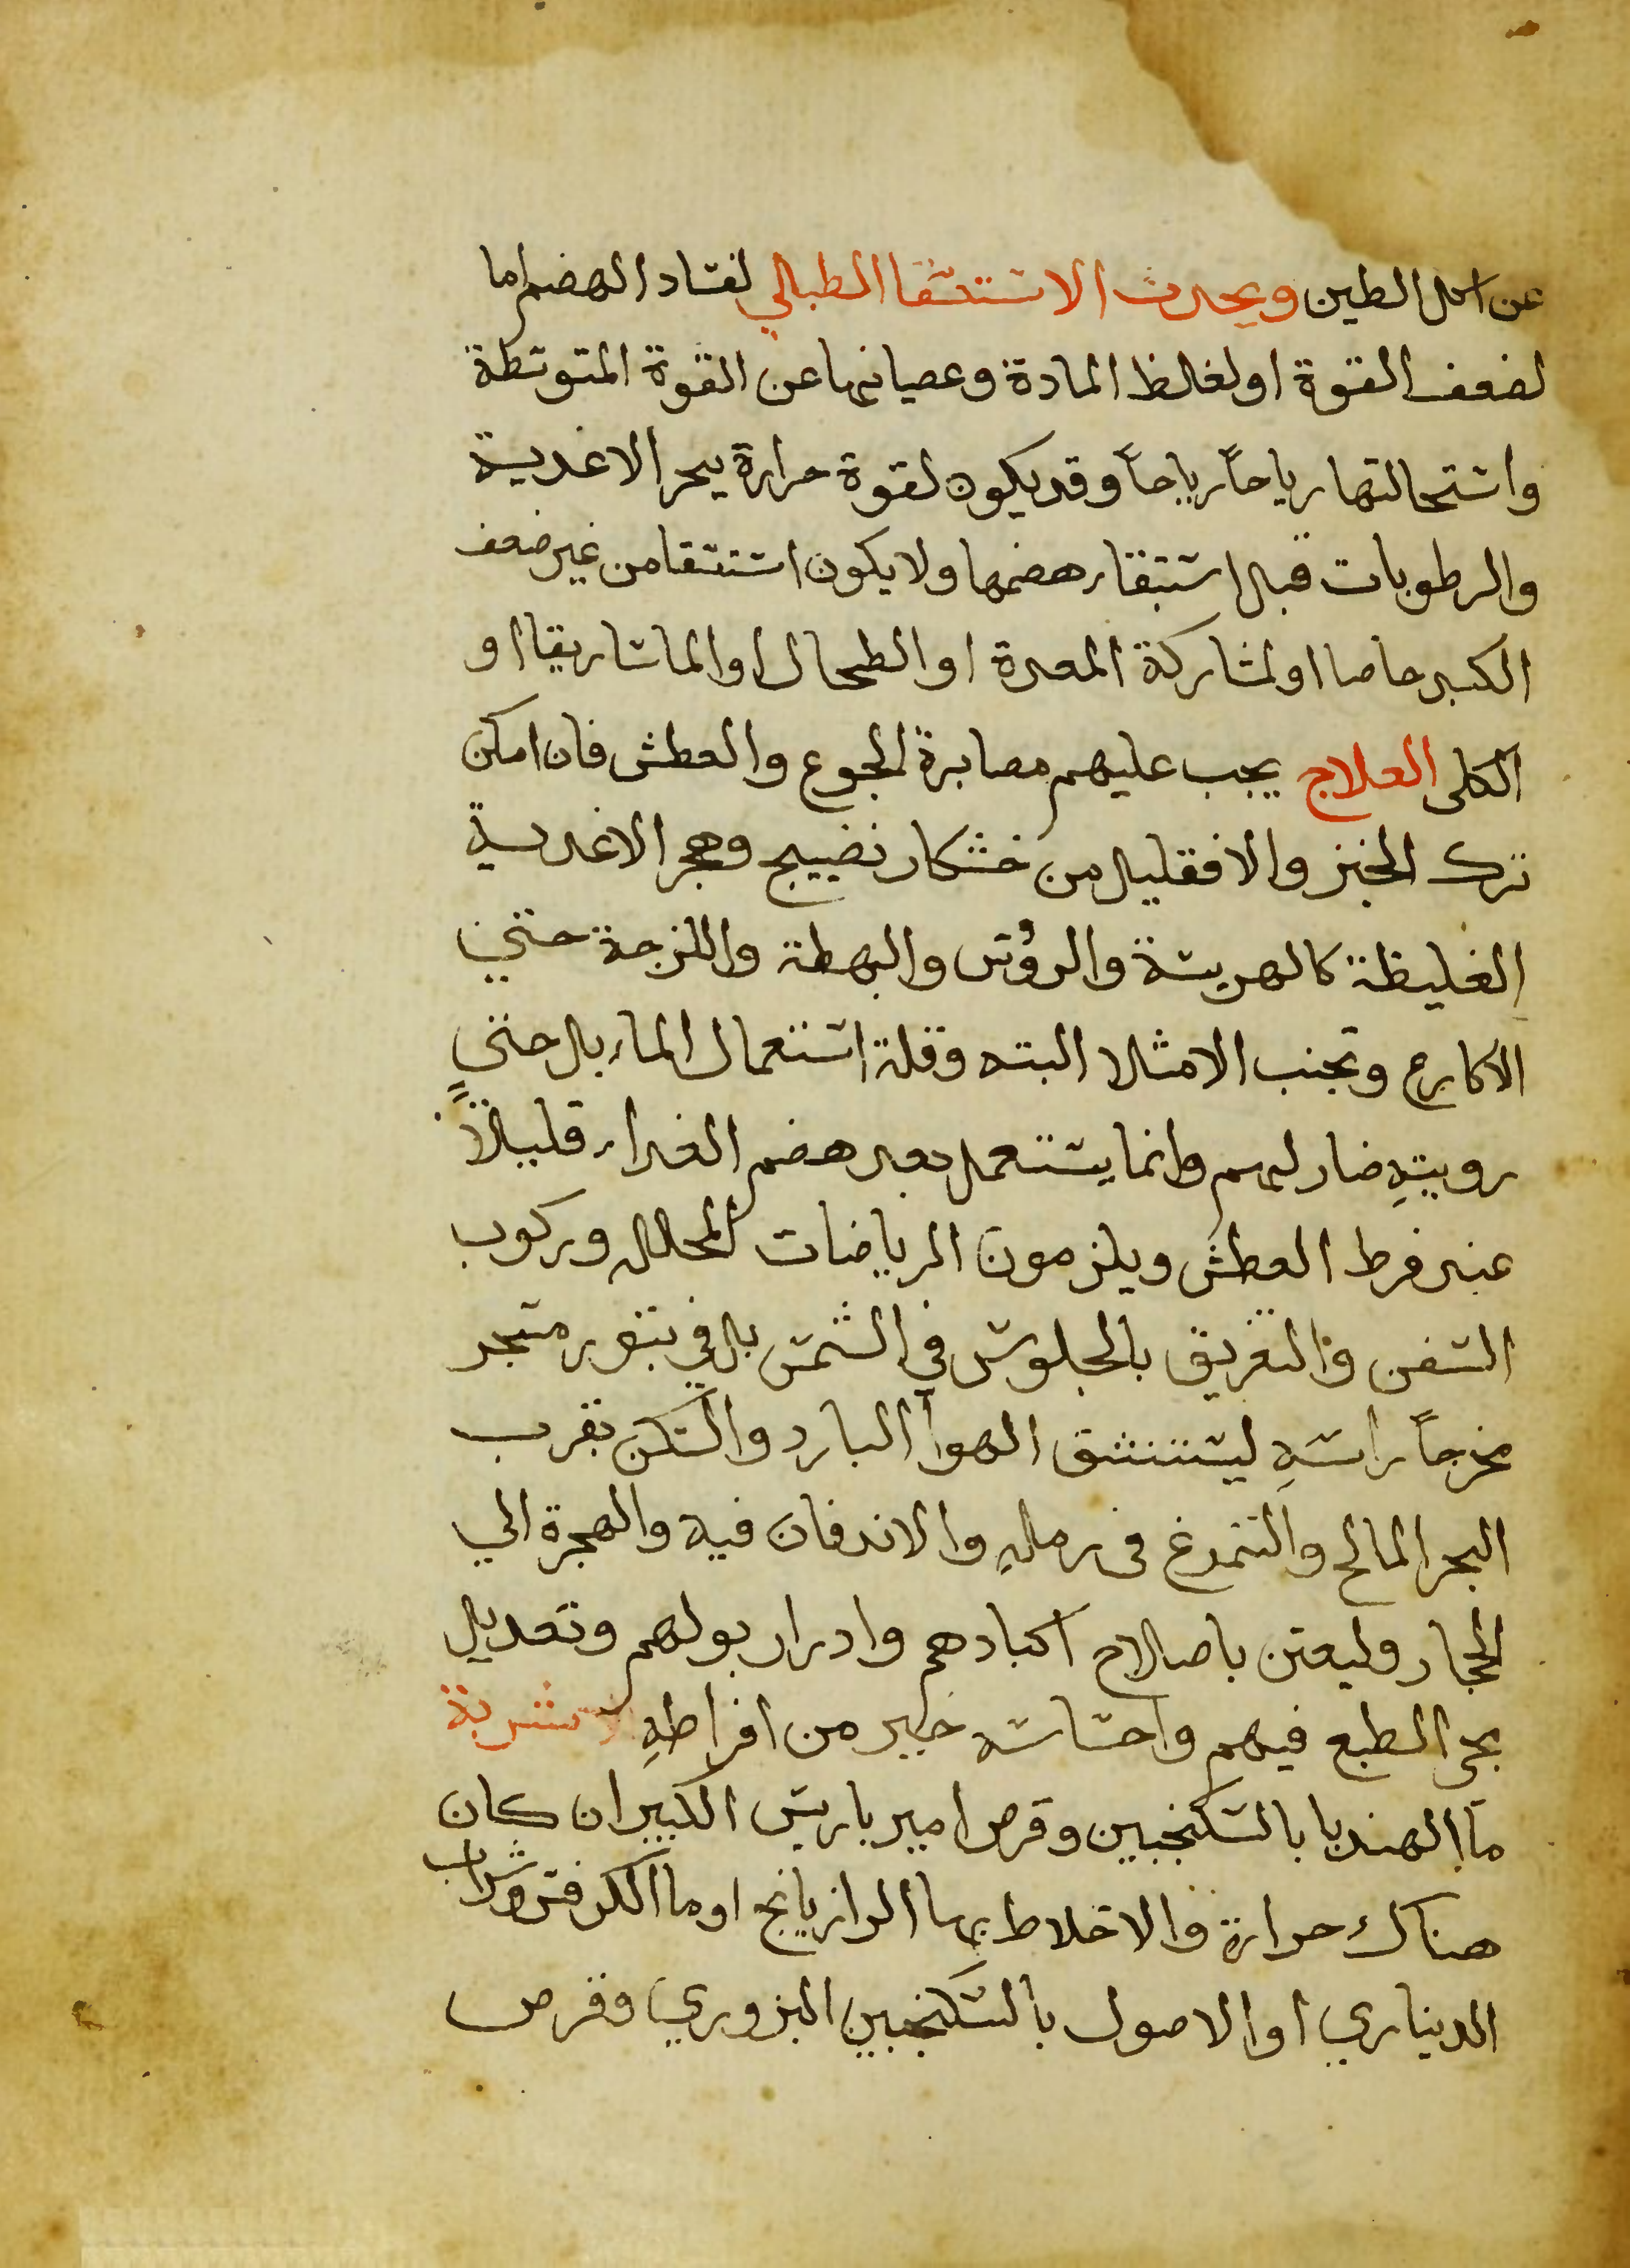 عن اكل الطين ويحدث الاستسقا الطبالي لفساد الهضم اما
لضعف القوة او لغلظ المادة وعصيانها عن القوة المتوسطة
واستحالتها رياحاً رياحاً وقد يكون لقوة حرارة يبخر الاغدية
والرطوبات قبل استبقاء هضمها ولا يكون استسقا من غير ضعف
الكبد خاصا او لمشاركة المعدة او الطحال او الماساريقا او
الكلى العلاج يجب عليهم مصابرة الجوع والعطش فان امكن
ترك الخبز والا فقليل من خشكار نضيج وهجر الاغدية
الغليظة كالهريسة والرؤس والبهطة واللزجة حتي
الاكارع وتجنب الامتلا البته وقلة استعمال الماء بل حتى
رويتهِ ضار لهم وانما يستعمل بعد هضم الغداء قليلاً
عند فرط العطش ويلزمون الرياضات المحلله وركوب
السفن والتعريق بالجلوس في الشمس بل في تنور مسجر
مخرجاً راسهِ ليستنشق الهوا البارد والسكن بقرب
البحر المالح والتمرغ في رملهِ والاندفان فيه والهجرة الي
الحجاز وليعتن باصلاح اكبادهم وادرار بولهم وتعديل
مجى الطبع فيهم واحتباسه خير من افراطهِ الاشربة
ما الهندبا بالسكنجبين وقرص امير باريس الكبير ان كان
هناك حرارة والاخلاط بما الرازيانج او ما الكرفس وشراب
الديناري او الاصول بالسكنجبين البزوري وقرص